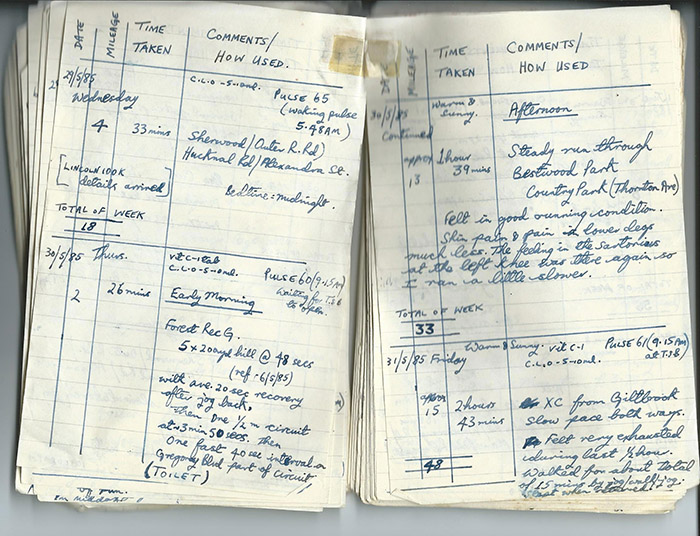 DATE
MILEAGE
TIME TAKEN
COMMENTS/ HOW USED.
29/5/85
Wednesday
C.L.O -5-10ml.
PULSE 65
(waking pulse
5.48AM)
4
33mins
Sherwood/Outer R. Rd)
Hucknal Rd/Alexandra St.
[LINCOLN 100K
details arrived]
Bedtime: midnight.
TOTAL OF WEEK
18
30/5/85 Thurs.
vit C-1tab
C.L.O-5-0ml.
PULSE 60 (9.15AM)
Waiting for T.S.B
to open.
2
26mins
Early Morning
Forest Rec G.
5 x 200yd hill @ 48 secs
(ref-6/5/85)
with ave. 20 sec recovery
after jog back.
Then One ½ m circuit
at 3min 50 secs. Then
One fast 40 sec interval on
Gregory Blvd part of circuit
(TOILET)
MILEAGE
TIME TAKEN
COMMENTS/ HOW USED
30/5/85
Continued
Warm &
Sunny.
Afternoon
approx
13
1hour
39mins
Steady run through
Bestwood Park
Country Park (Thornton Ave)
Felt in good running condition.
Shin pain & pain in lower legs
much less. The feeling in the Sartorious
at the left knee was there again so
I ran a little slower.
TOTAL OF WEEK
33
31/5/85 Friday
Warm & Sunny.
vit C-1
C.L.O-5-10ml.
PULSE 61 (9.15AM
at T.S.B)
approx
15
2hours
43mins
XC from Giltbrook
slow pace both ways.
Felt very exhausted
during last ½ hour.
Walked for about total
of 15 mins by jog/walk/jog.
48